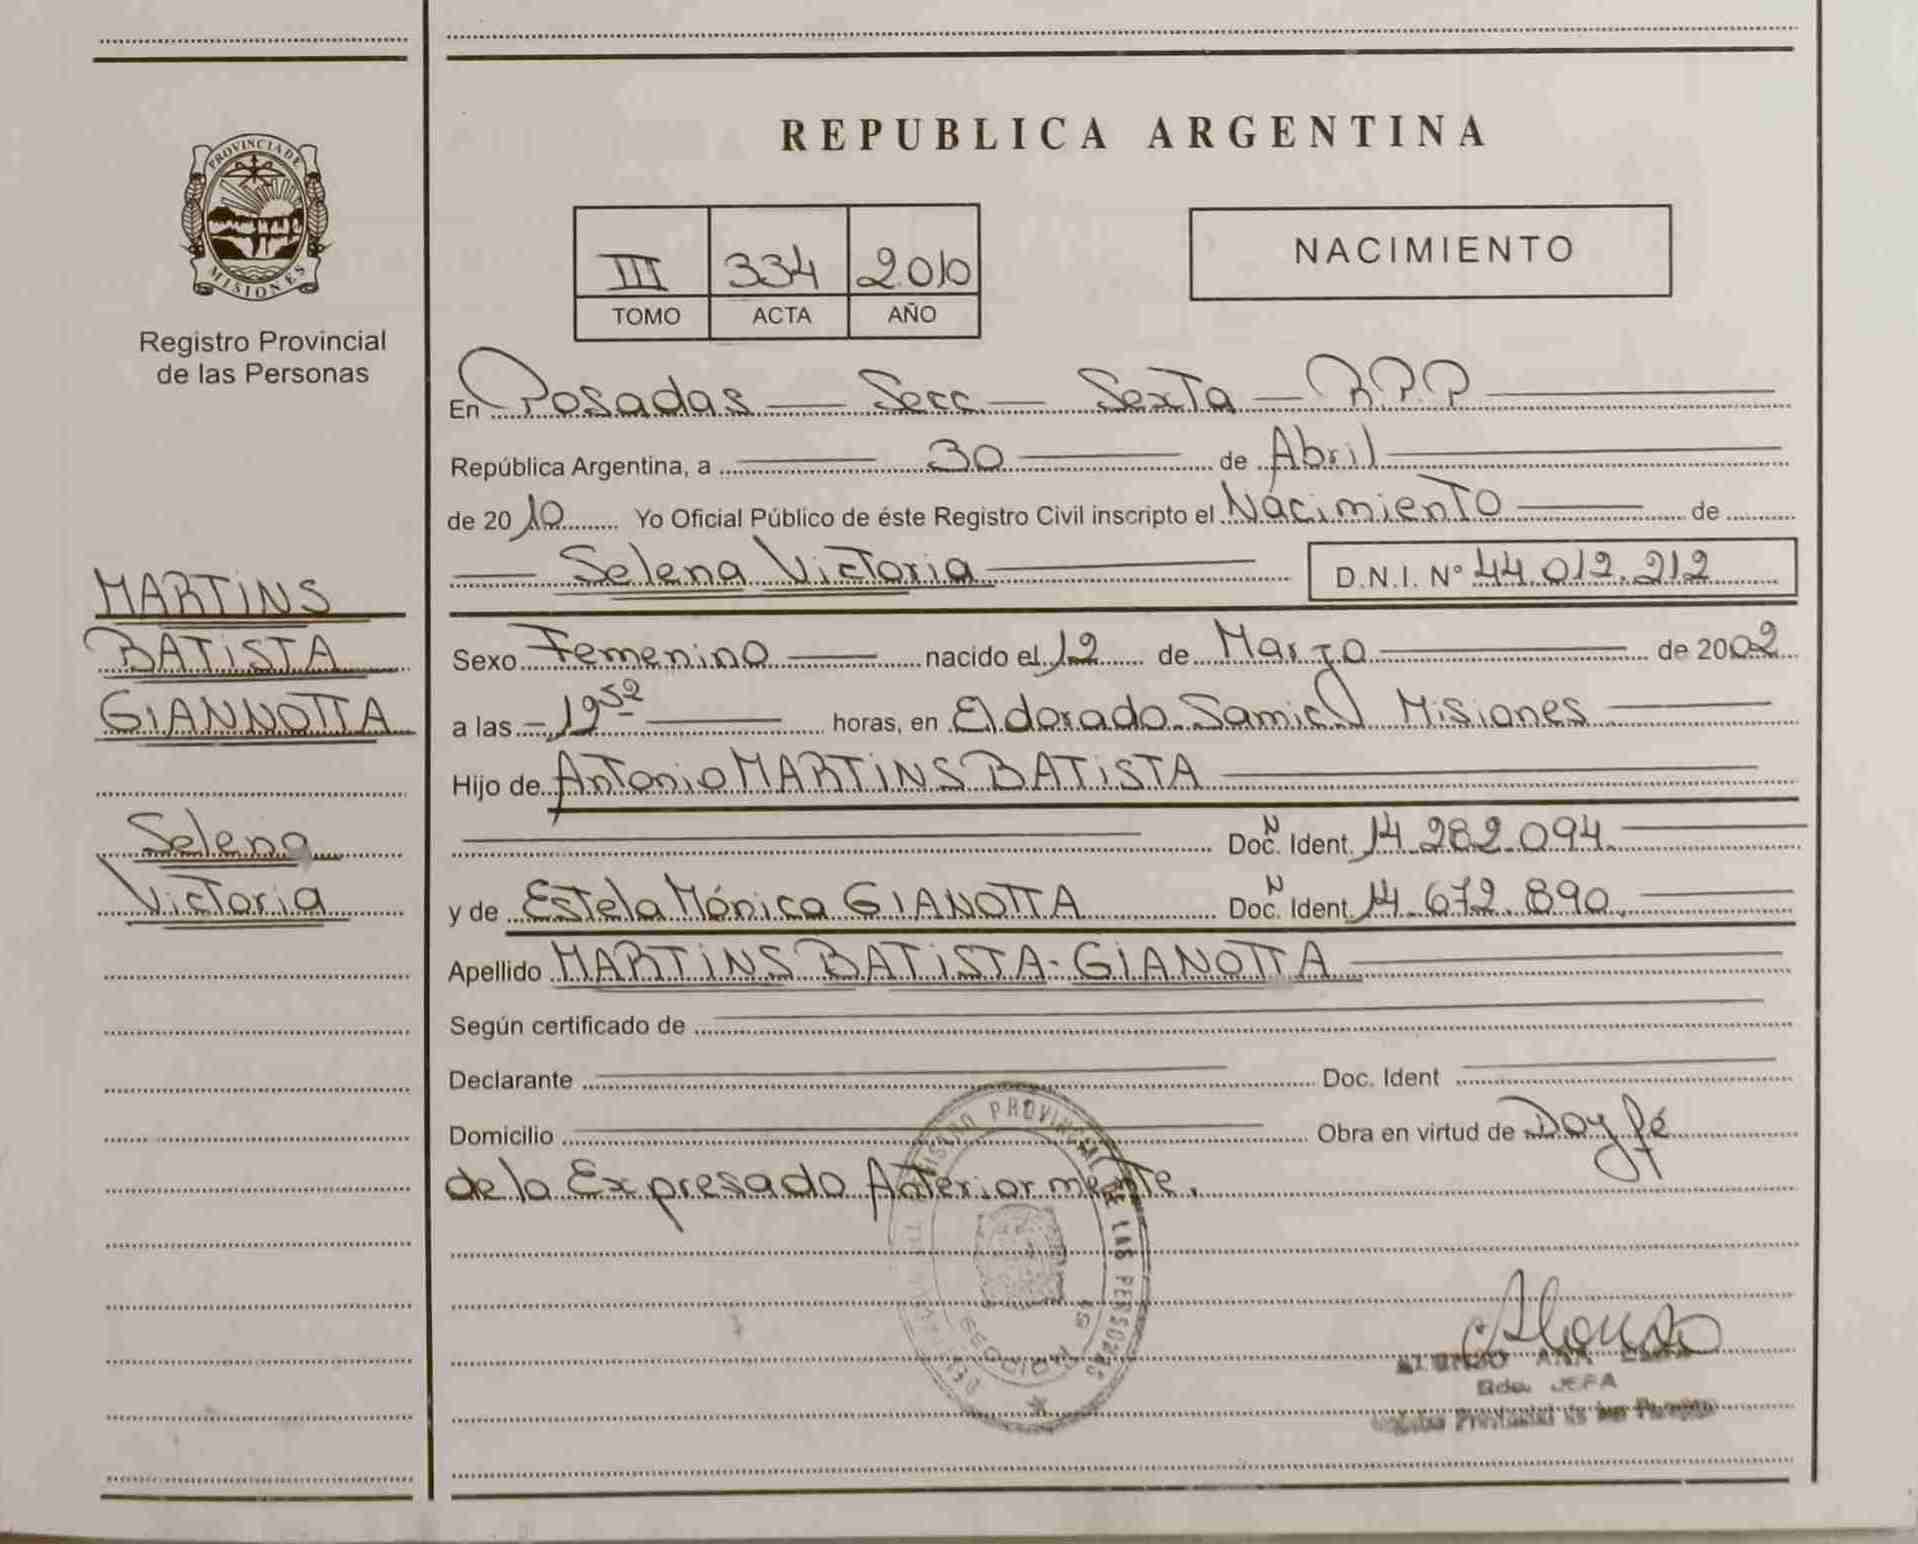 PROVINCIA DE
MISIONES
Registro Provincial
de las Personas
MARTINS
BATISTA
GIANNOTTA
Selena
Victoria
REPUBLICA ARGENTINA
III 334 2010
TOMO ACTA AÑO
NACIMIENTO
En Posadas — Secc — Sexta — R.P.P
República Argentina, a 30 de Abril
de 2010 Yo Oficial Público de éste Registro Civil inscripto el Nacimiento de
Selena Victoria D.N.I. N° 44.012.212
Sexo Femenino nacido el 12 de Marzo de 2002
a las 19 52 horas, en Eldorado Samic Misiones
Hijo de Antonio MARTINS BATISTA
Doc. N Ident. 14.282.094.
y de Estela Mónica GIANOTTA Doc. N Ident. 14.672.890.
Apellido MARTINS BATISTA-GIANOTTA
Según certificado de
Declarante Doc. Ident
Domicilio Obra en virtud de Doy fé
de lo Expresado Anteriormente.
PROVINCIAL DE LAS PERSONAS
Alonso
ANA
Gda. JEFA
Provincial de las Personas